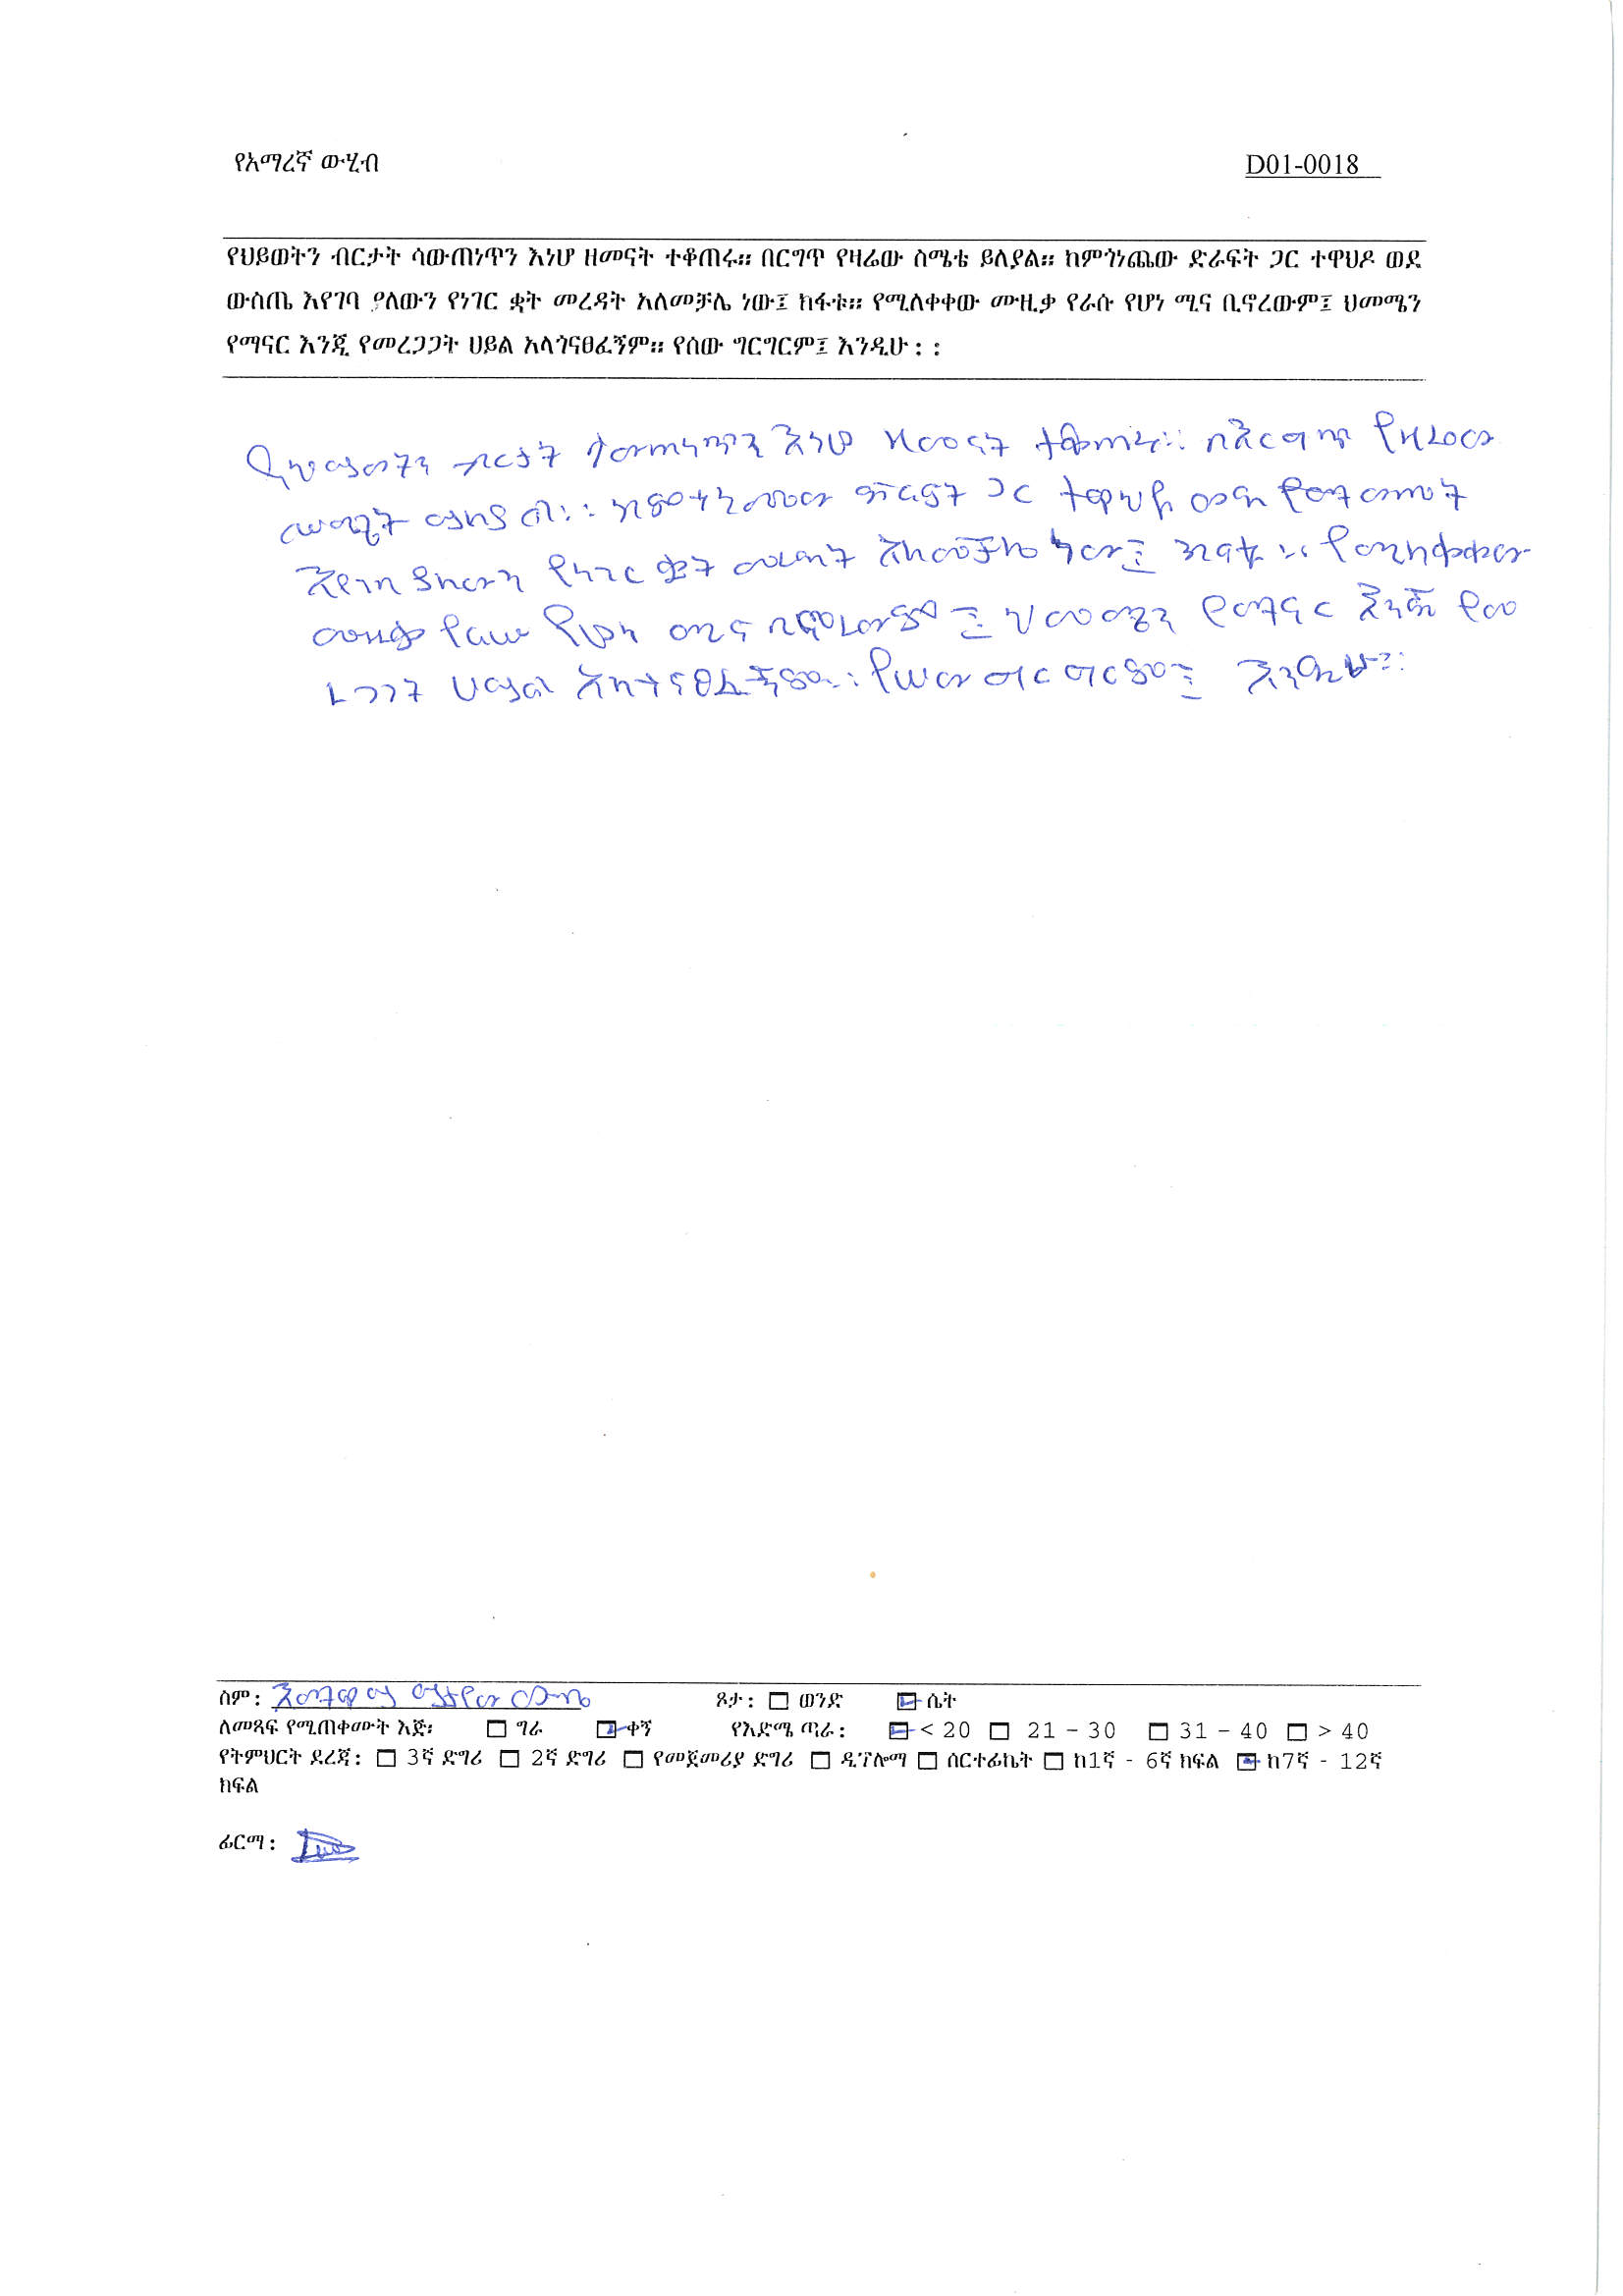 የአማረኛ ውሂብ
D01-0018
የህይወትን ብርታት ሳውጠነጥን እነሆ ዘመናት ተቆጠሩ። በርግጥ የዛሬው ስሜቴ ይለያል። ከምጎነጨው ድራፍት ጋር ተዋህዶ ወደ
ውስጤ እየገባ ያለውን የነገር ቋት መረዳት አለመቻሌ ነው፤ ከፋቱ። የሚለቀቀው ሙዚቃ የራሱ የሆነ ሚና ቢኖረውም፤ ህመሜን
የማናር እንጂ የመረጋጋት ህይል አላጎናፀፈኝም። የሰው ግርግርም፤ እንዲሁ፡፡
የህይወትን ብርታት ሳውጠነጥን እነሆ ዘመናት ተቆጠሩ። በእርግጥ የዛሬው
ይለያል። ከምጎነጨው ድራፍት ጋር ተዋህዶ ወደ
እየገባ ያለውን የነገር ቋት መረዳት አለመቻሌ ነው፤ ከፋቱ። የሚለቀቀው
ሙዚቃ የራሱ የሆነ ሚና ቢኖረውም፤ ህመሜን የማናር እንጂ የመ
ረጋጋት ሀይል አላጎናፀፈኝም። የሠው ግርግርም፤ እንዲሁ፡፡
ስም: ጾታ: ወንድ ሴት
ለመጻፍ የሚጠቀሙት እጅ፡ ግራ ቀኝ የእድሜ ጣራ: < 20 21 - 30 31 - 40 > 40
የትምህርት ደረጃ: 3ኛ ድግሪ 2ኛ ድግሪ የመጀመሪያ ድግሪ ዲፕሎማ ሰርተፊኬት ከ1ኛ - 6ኛ ክፍል ከ7ኛ - 12ኛ
ክፍል
ፊርማ: